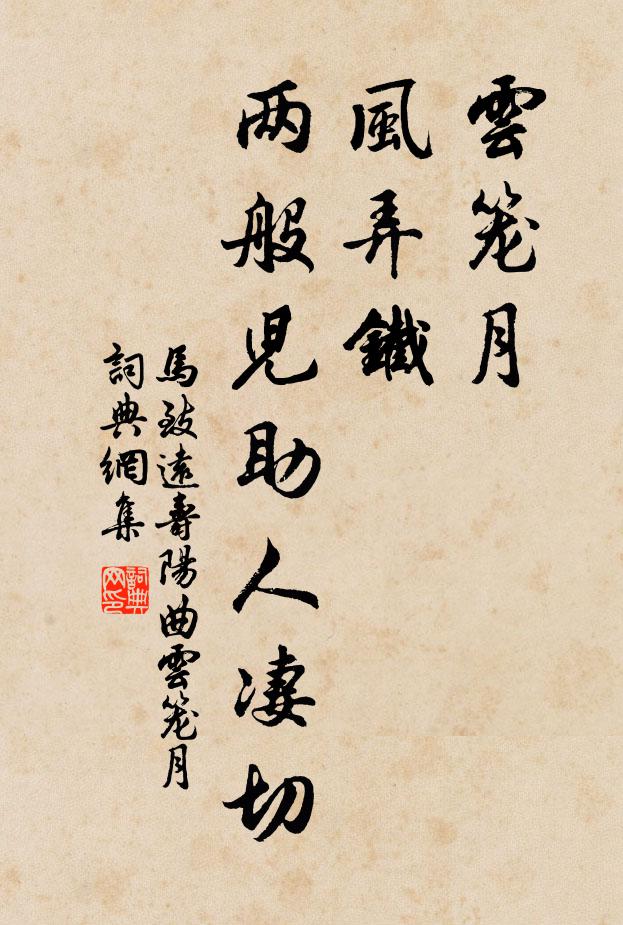 雲笼月
風弄鐵
两般児助人凄切
馬致遠壽陽曲雲笼月
詞典網集
詞典
网印